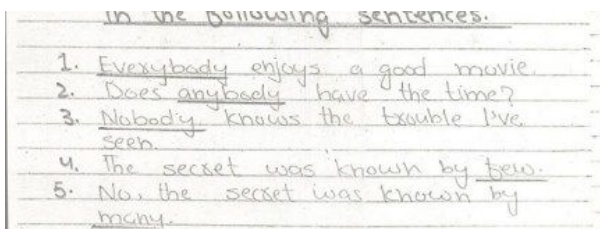 in the following sentences.
1. Everybody enjoys a good movie.
2. Does anybody have the time?
3. Nobody knows the trouble I've
seen.
4. The secret was known by few.
5. No, the secret was known by
many.